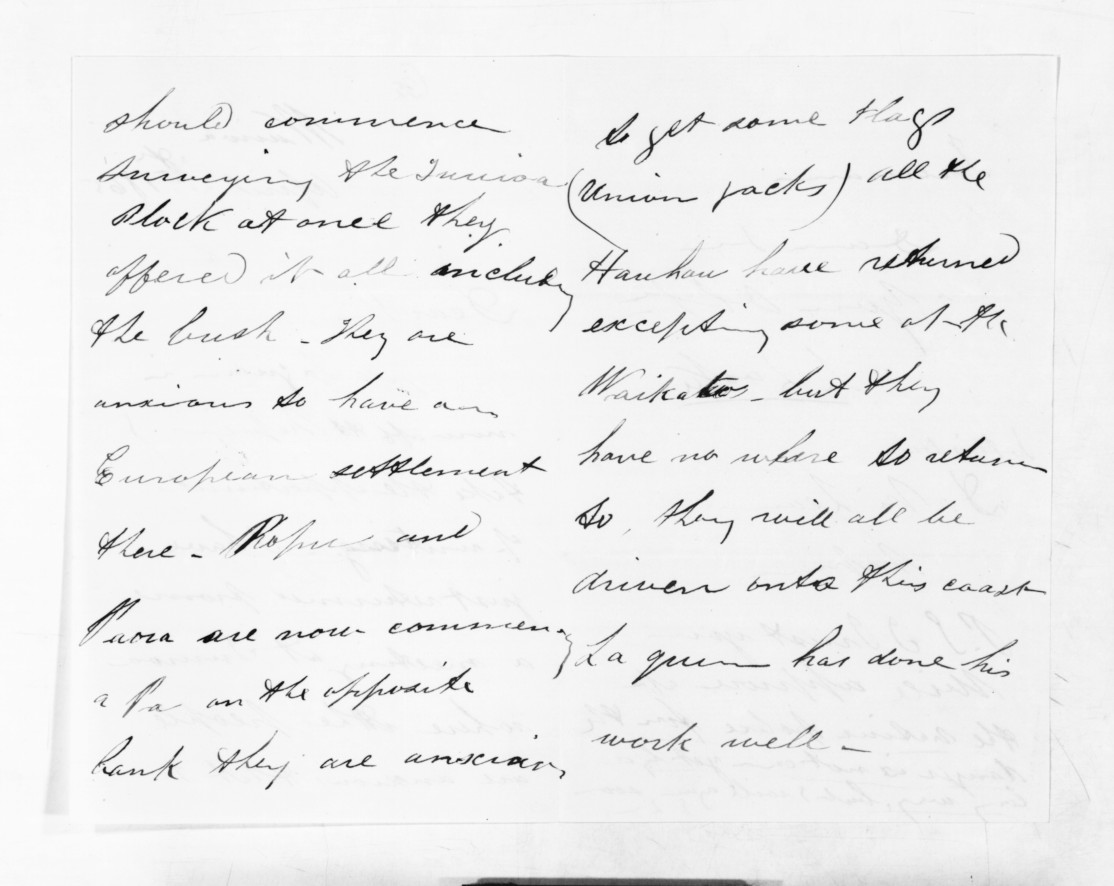 should commence
surveying the
Block at once they
offered it all includg
the bush - They are
anxious to have an
European settlement
there - Ropu and
Paora are now commencg
a Pa on the opposite
bank they are anxious
to get some Flags
(Union Jacks) all the
Hauhau have returned
excepting some of the
Waikatos - but they
have no where to return
to, they will all be
driven onto this coast
has done his
work well -